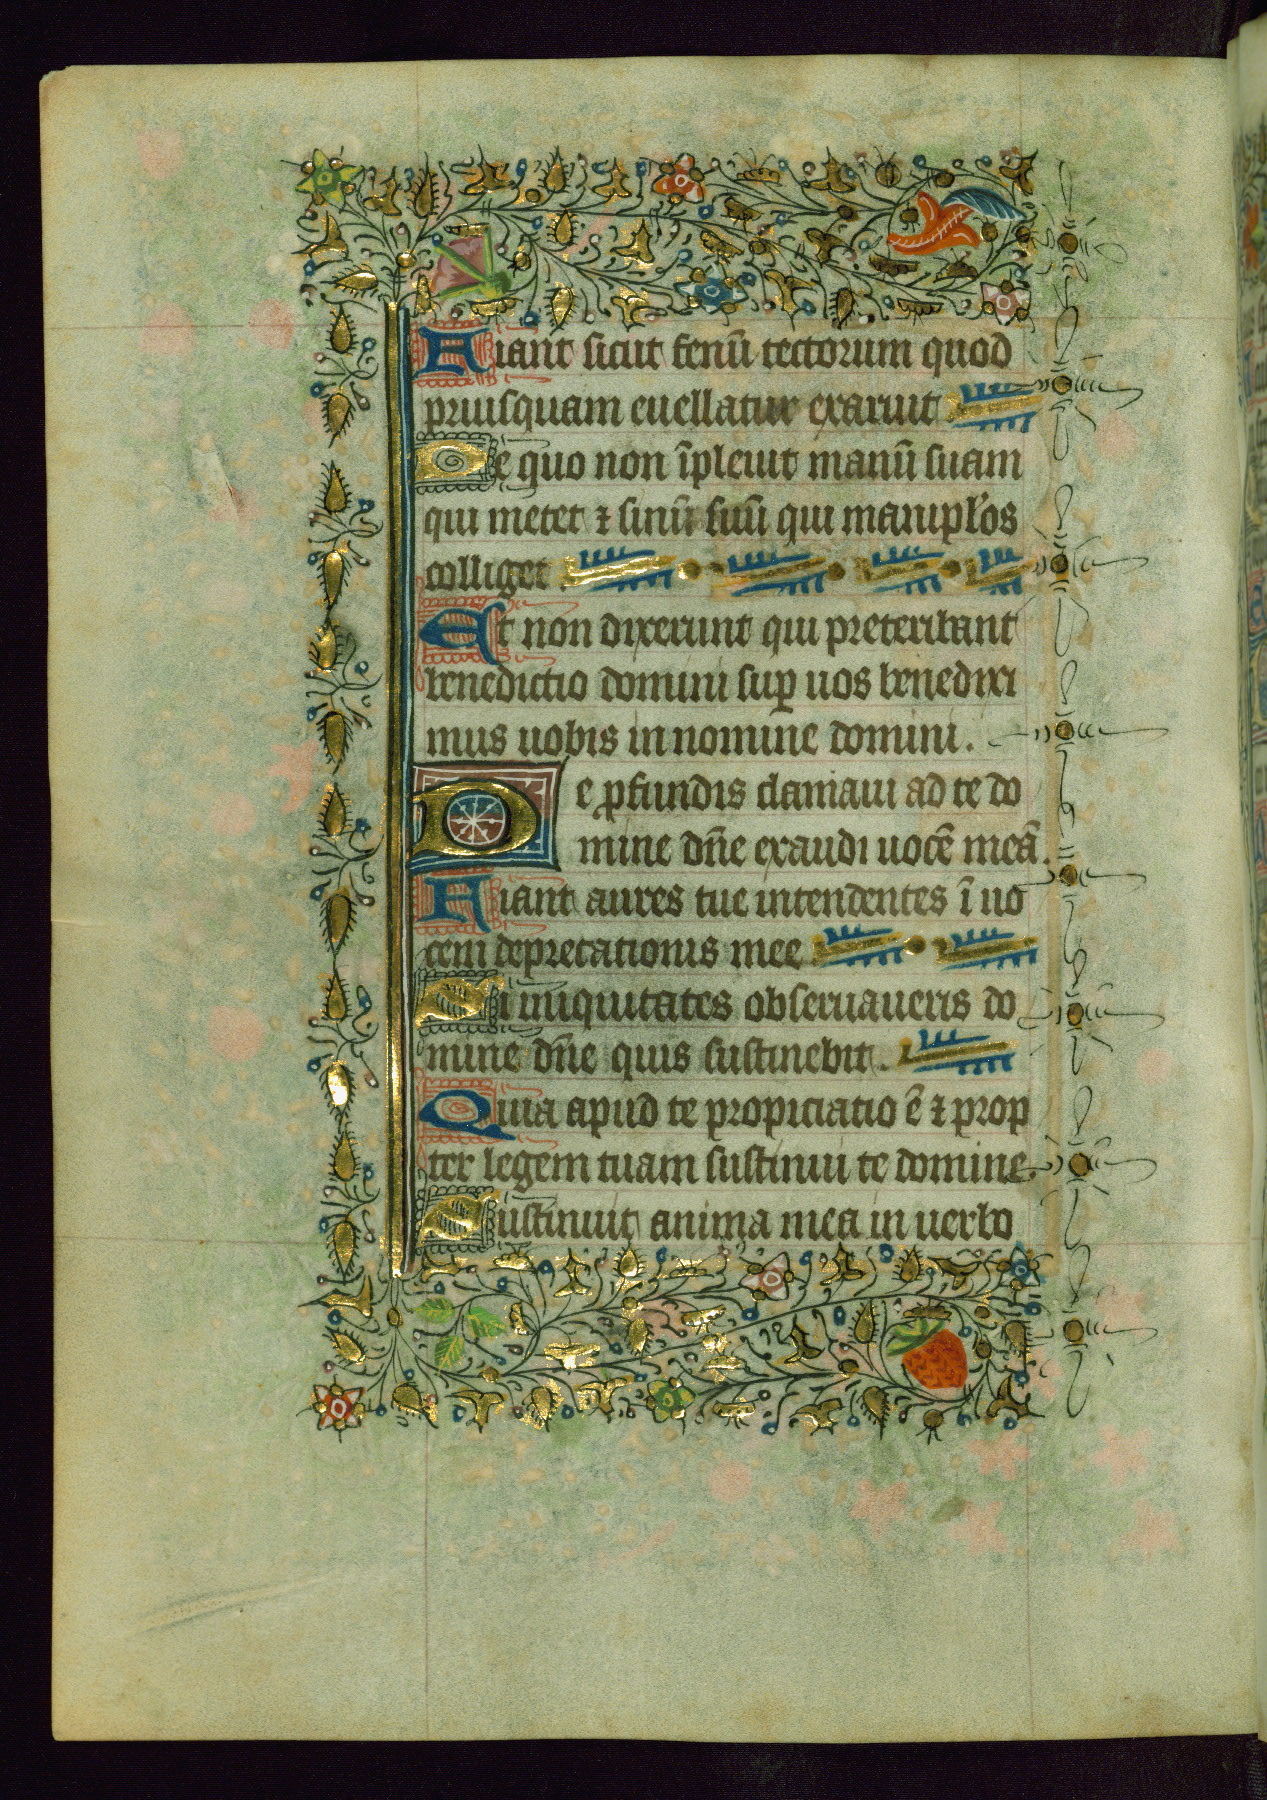 Fiant sicut fenū tectorum quod
priusquam euellatur exaruit
De quo non īpleuit manū suam
qui metet ⁊ sinū suū qui manipl'os
colliget.
Et non dixerunt qui preteribant
benedictio domini suꝑ uos benedixi
mus uobis in nomine domini.
De ꝓfundis clamaui ad te do
mine dn̄e exaudi uocē meā.
Fiant aures tue intendentes ī uo
cem deprecationis mee
Si iniquitates obseruaueris do
mine dn̄e quis sustinebit.
Quia apud te propiciatio ē ⁊ prop
ter legem tuam sustinui te domine
Sustinuit anima mea in uerbo